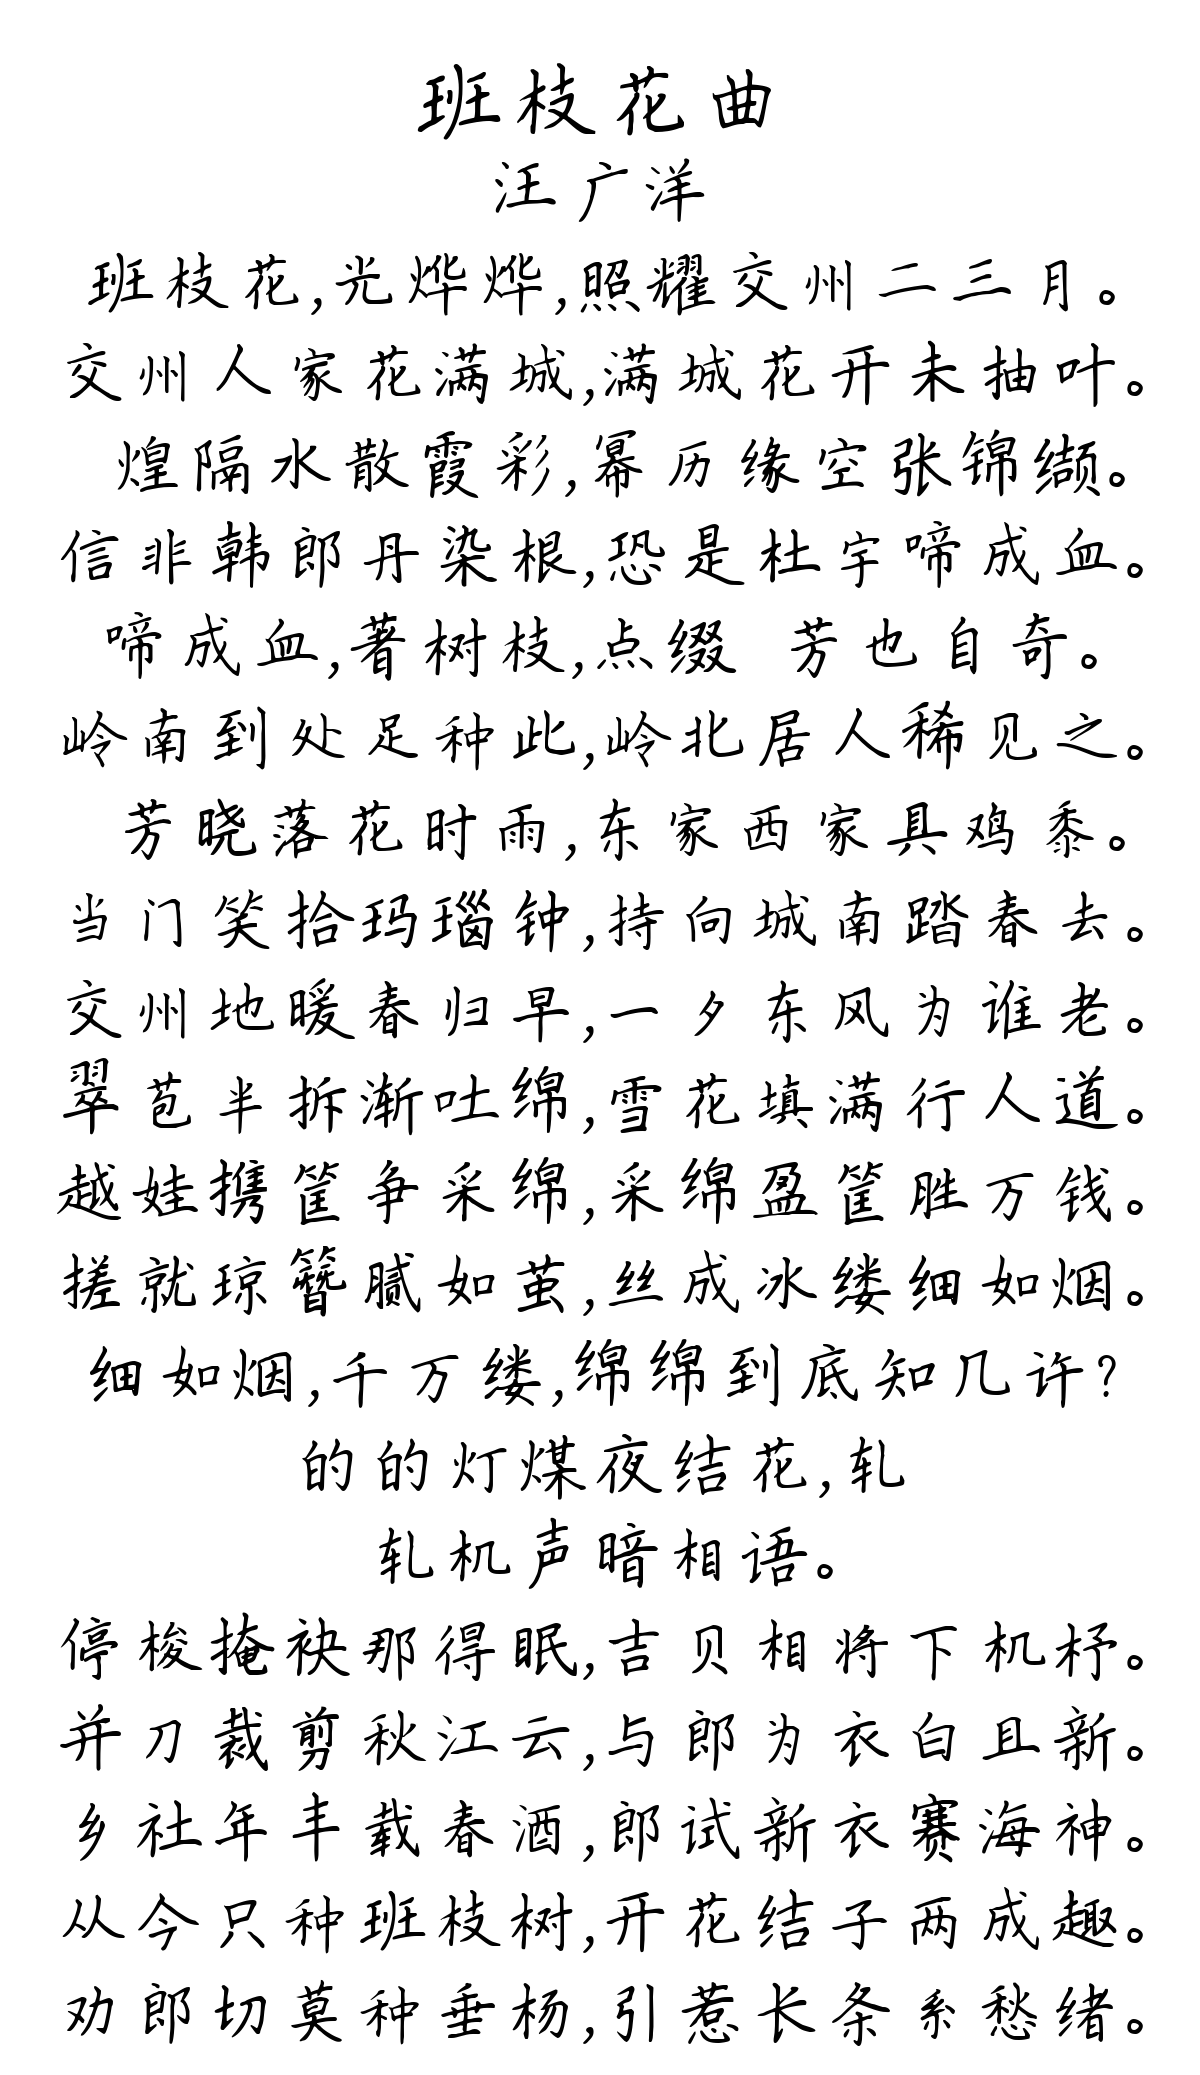 班枝花曲
汪广洋
班枝花,光烨烨,照耀交州二三月。
交州人家花满城,满城花开未抽叶。
煌隔水散霞彩,幂历缘空张锦缬。
信非韩郎丹染根,恐是杜宇啼成血。
啼成血,著树枝,点缀 芳也自奇。
岭南到处足种此,岭北居人稀见之。
芳晓落花时雨,东家西家具鸡黍。
当门笑拾玛瑙钟,持向城南踏春去。
交州地暖春归早,一夕东风为谁老。
翠苞半拆渐吐绵,雪花填满行人道。
越娃携筐争采绵,采绵盈筐胜万钱。
搓就琼簪腻如茧,丝成冰缕细如烟。
细如烟,千万缕,绵绵到底知几许?
的的灯煤夜结花,轧
轧机声暗相语。
停梭掩袂那得眠,吉贝相将下机杼。
并刀裁剪秋江云,与郎为衣白且新。
乡社年丰载春酒,郎试新衣赛海神。
从今只种班枝树,开花结子两成趣。
劝郎切莫种垂杨,引惹长条系愁绪。